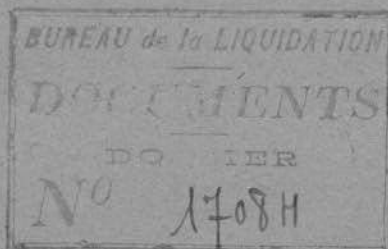 BUREAU de la LIQUIDATION
DOCUMENTS
DOSSIER
Nº 1708H